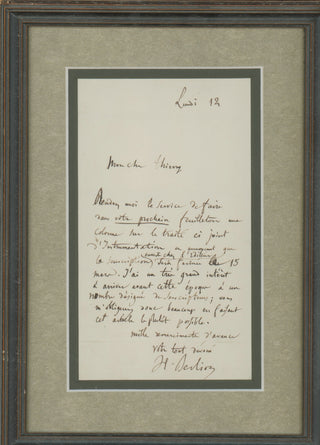 Lundi 12
Mon cher
Rendez moi le service de faire
dans votre prochain feuilleton une
sur le traité ci joint
d'Instrumentation en que
la souscription sera fermée le 15
chez l'éditeur
mars. J'ai un très grand intérêt
à arriver avant cette époque à un
nombre désigné de souscripteurs; vous
m'obligerez donc beaucoup en faisant
cet article le plutôt possible.
mille remerciments d'avance
votre tout dévoué
H. Berlioz